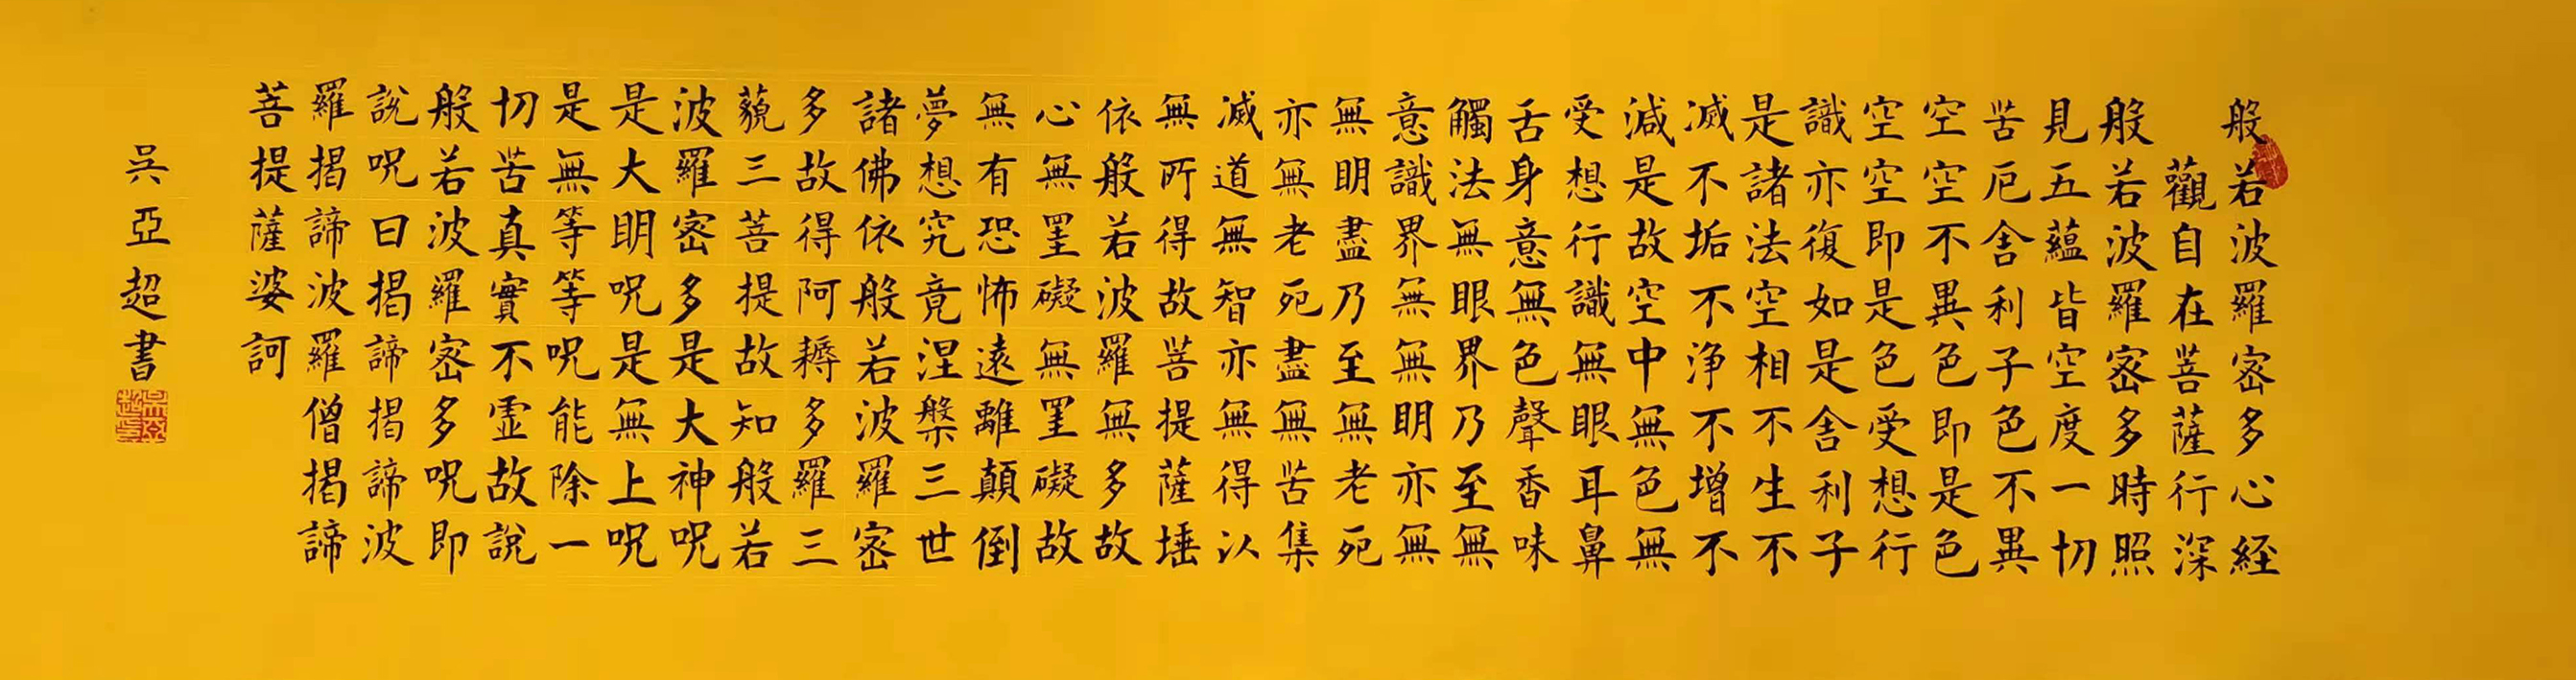 般若波羅密多心経
觀自在菩薩行深
般若波羅密多時照
見五蘊皆空度一切
苦厄舍利子色不異
空空不異色即是色
空空即是色受想行
識亦復如是舍利子
是諸法空相不生不
滅不垢不浄不增不
減是故空中無色無
受想行識無眼耳鼻
舌身意無色聲香味
觸法無眼界乃至無
意識界無無明亦無
無明盡乃至無老死
亦無老死盡無苦集
滅道無智亦無得以
無所得故菩提薩埵
依般若波羅無多故
心無罣礙無罣礙故
無有恐怖遠離顛倒
夢想究竟涅槃三世
諸佛依般若波羅密
多故得阿耨多羅三
藐三菩提故知般若
波羅密多是大神呪
是大明呪是無上呪
是無等等呪能除一
切苦真實不虛故說
般若波羅密多呪即
說呪曰揭諦揭諦波
羅揭諦波羅僧揭諦
菩提薩婆訶
吳亞超書